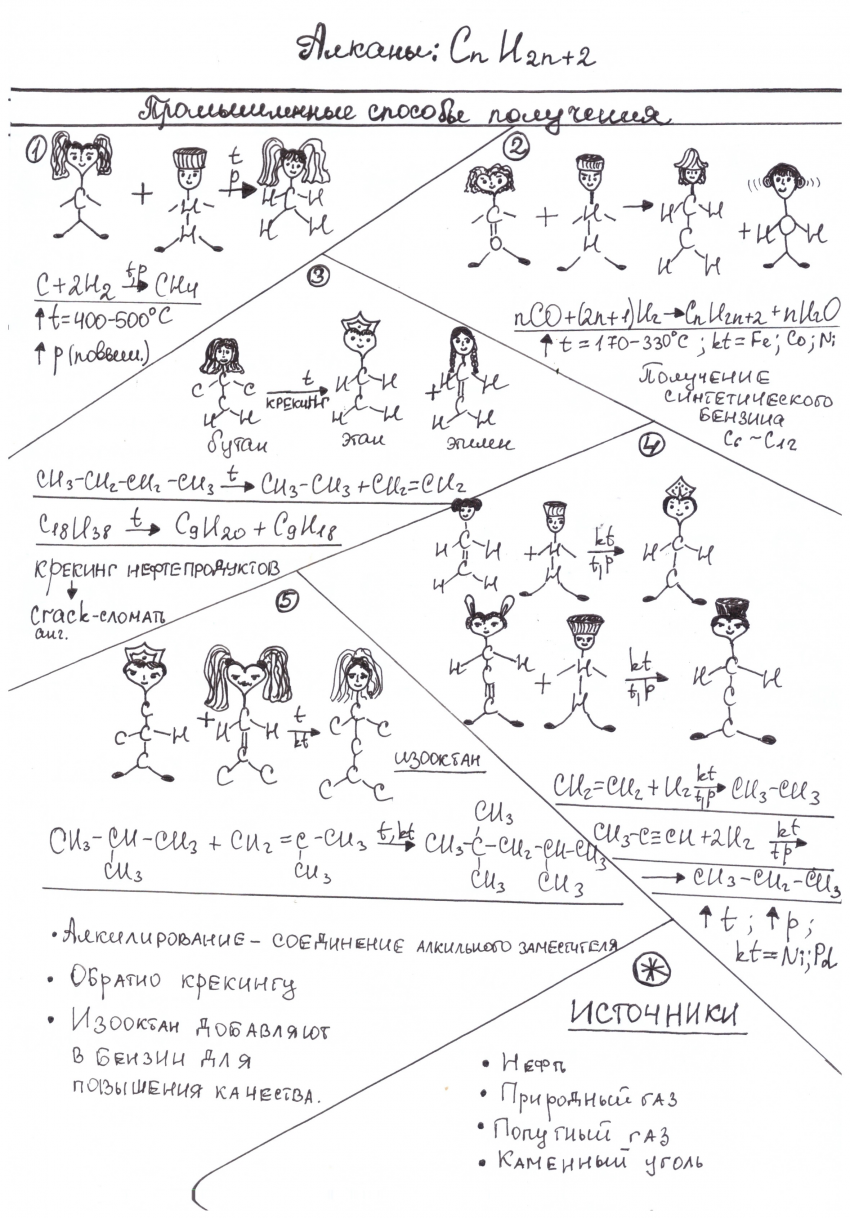 Алканы: CnH2n+2
Промышленные способы получения
1
C + H H t p → C H H H H
C+2H2 t,p → CH4
↑ t=400-500°C
↑ p (повыш.)
2
C = O + H H → C H H C H H + H O H
nCO+(2n+1)H2 → CnH2n+2 + nH2O
↑ t = 170-330°C ; kt=Fe; Co; Ni
Получение
синтетического
бензина
C6 ~ C12
3
C C C C H H t → крекинг H C H H C H + C H C H H
бутан этан этилен
CH3-CH2-CH2-CH3 t → CH3-CH3 + CH2=CH2
C18H38 t → C9H20 + C9H18
крекинг нефтепродуктов
crack-сломать
анг.
4
H C H H C H + H H kt t,p → H C H C
H C H C C + H H kt t,p → H C H C C
CH2=CH2 + H2 kt t,p → CH3-CH3
CH3-C≡CH + 2H2 kt tp →
→ CH3-CH2-CH3
↑ t ; ↑ p ;
kt=Ni;Pd
5
C C C H C + H C H C C C t kt → C C C C C C C
изооктан
CH3
CH3-CH-CH3 + CH2=C-CH3 t, kt → CH3-C-CH2-CH-CH3
CH3 CH3 CH3 CH3
• Алкилирование - соединение алкильного заместителя
• Обратно крекингу
• Изооктан добавляют
в бензин для
повышения качества.
Источники
• Нефть
• Природный газ
• Попутный газ
• Каменный уголь